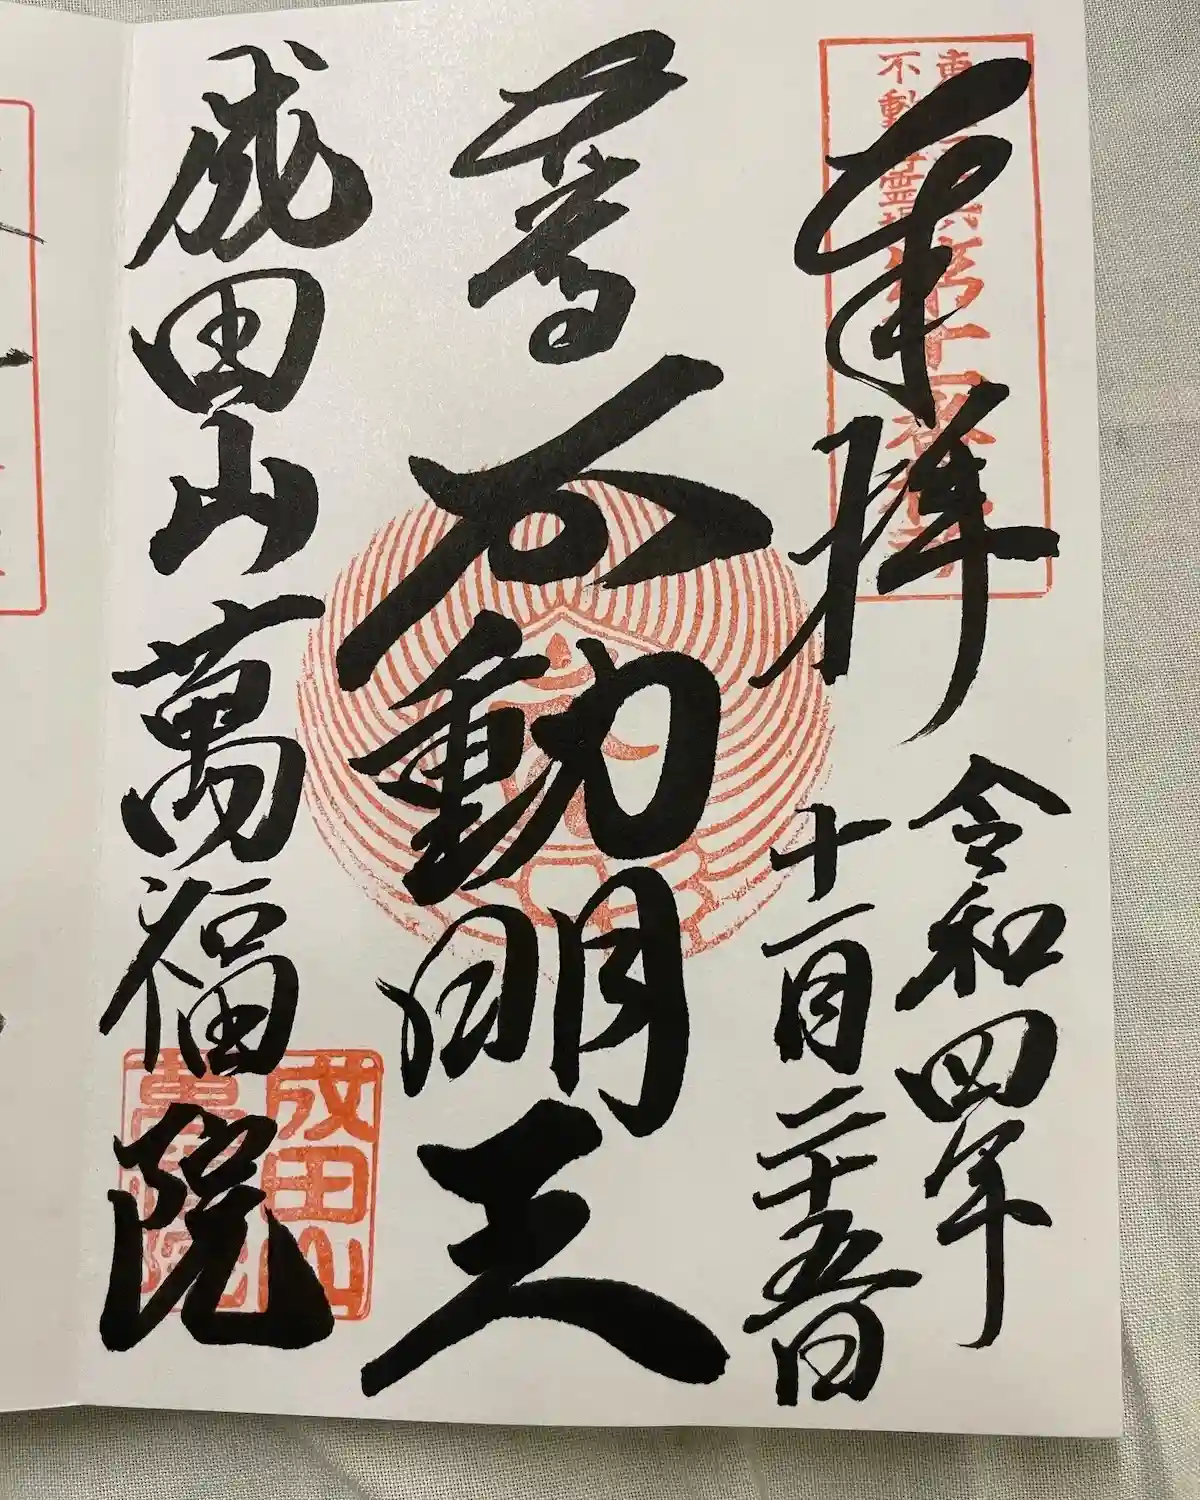 不動尊霊場
第十一番
奉拝
令和四年
十一月二十五日
不動明王
成田山萬福院
成田山